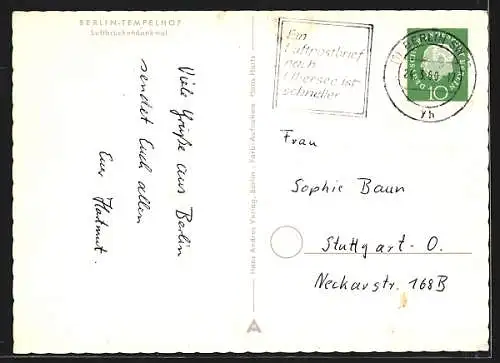 BERLIN-TEMPELHOF
Luftbrückendenkmal
Viele Grüße aus Berlin
sendet Euch allen
Euer Hartmut.
Hans Andres Verlag, Berlin · Farb-Aufnahme: Hans Hartz
Ein
Luftpostbrief
nach
Übersee ist
schneller
BERLIN
10
yh
Frau
Sophie Baun
Stuttgart-O.
Neckarstr. 168B